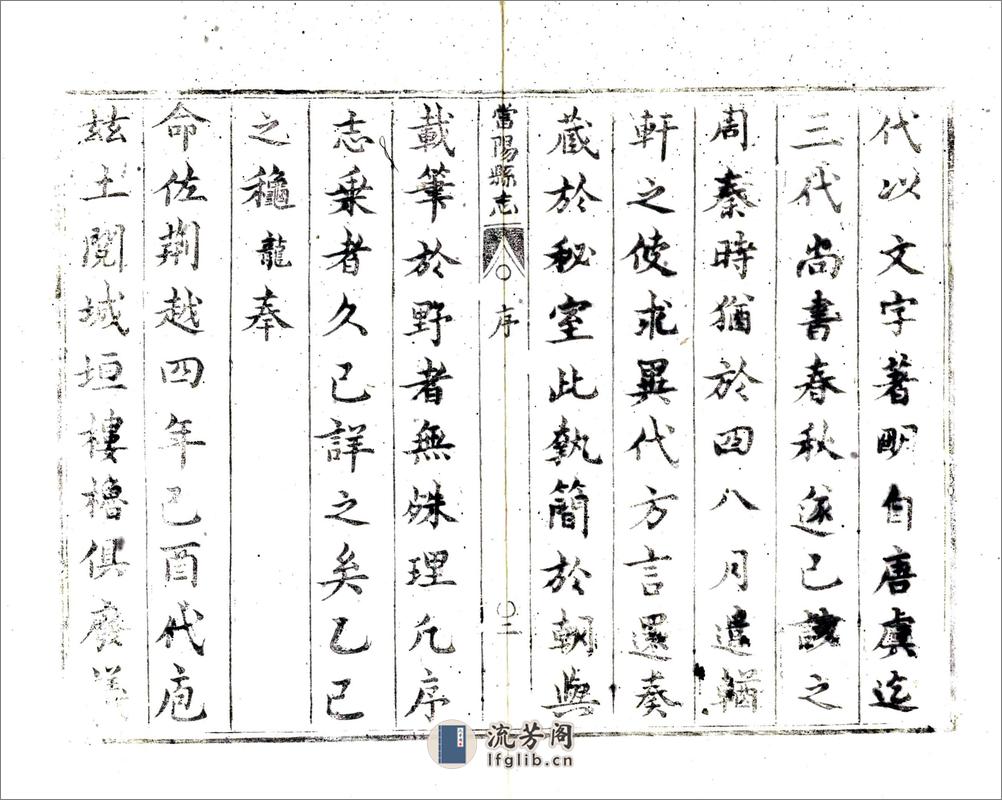 代以文字著明自唐虞迄
三代尚書春秋遂已該之
周秦時猶於四八月遣輶
軒之使求異代方言還奏
藏於秘室此執簡於朝與
當陽縣志
序
二
載筆於野者無殊理凡序
志乗者久已詳之矣乙巳
之龝龍奉
命佐荆越四年己酉代庖
兹土閱城垣樓櫓俱廢
流芳阁
lfglib.cn